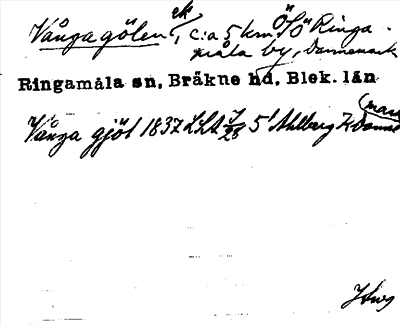 Vånga gölen ek, c:a 5 km ÖSÖ Ringa-
måla by, Dannemark
Ringamåla sn, Bräkne hd, Blek. län
Vånga gjöl 1837 LSA 5 Ahlberg Danne(mark